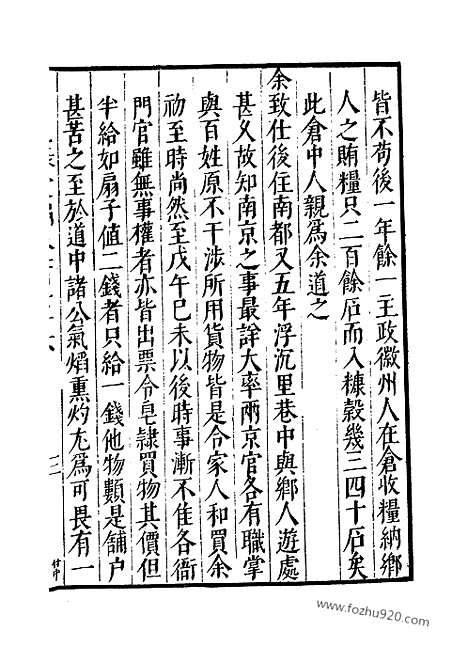 皆不苟後一年餘一主政徽州人在倉收糧納鄉
人之賄糧只二百餘石而入糠穀幾三四十石矣
此倉中人親爲余道之
余致仕後住南都又五年浮沉里巷中與鄉人遊處
甚久故知南京之事最詳大率兩京官各有職掌
與百姓原不干涉所用貨物皆是令家人和買余
初至時尚然至戊午巳未以後時事漸不佳各衙
門官雖無事權者亦皆出票令皂隷買物其價但
半給如扇子值二錢者只給一錢他物類是舖户
甚苦之至於道中諸公氣焰熏灼尤爲可畏有一
三
www.fozhu920.com